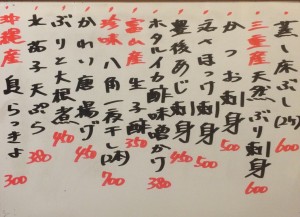 蒸し床ぶし(2ケ) 600
三重産天然ぶり刺身 600
かつお刺身 500
ほっけ刺身 500
豊後あじ刺身 450
ホタルイカ酢味噌かけ 380
富山産 生子酢 350
珍味 八角一夜干し(2ケ) 700
かれい唐揚げ 450
ぶりと大根煮 450
天ぷら 380
沖縄産 島らっきょ 300